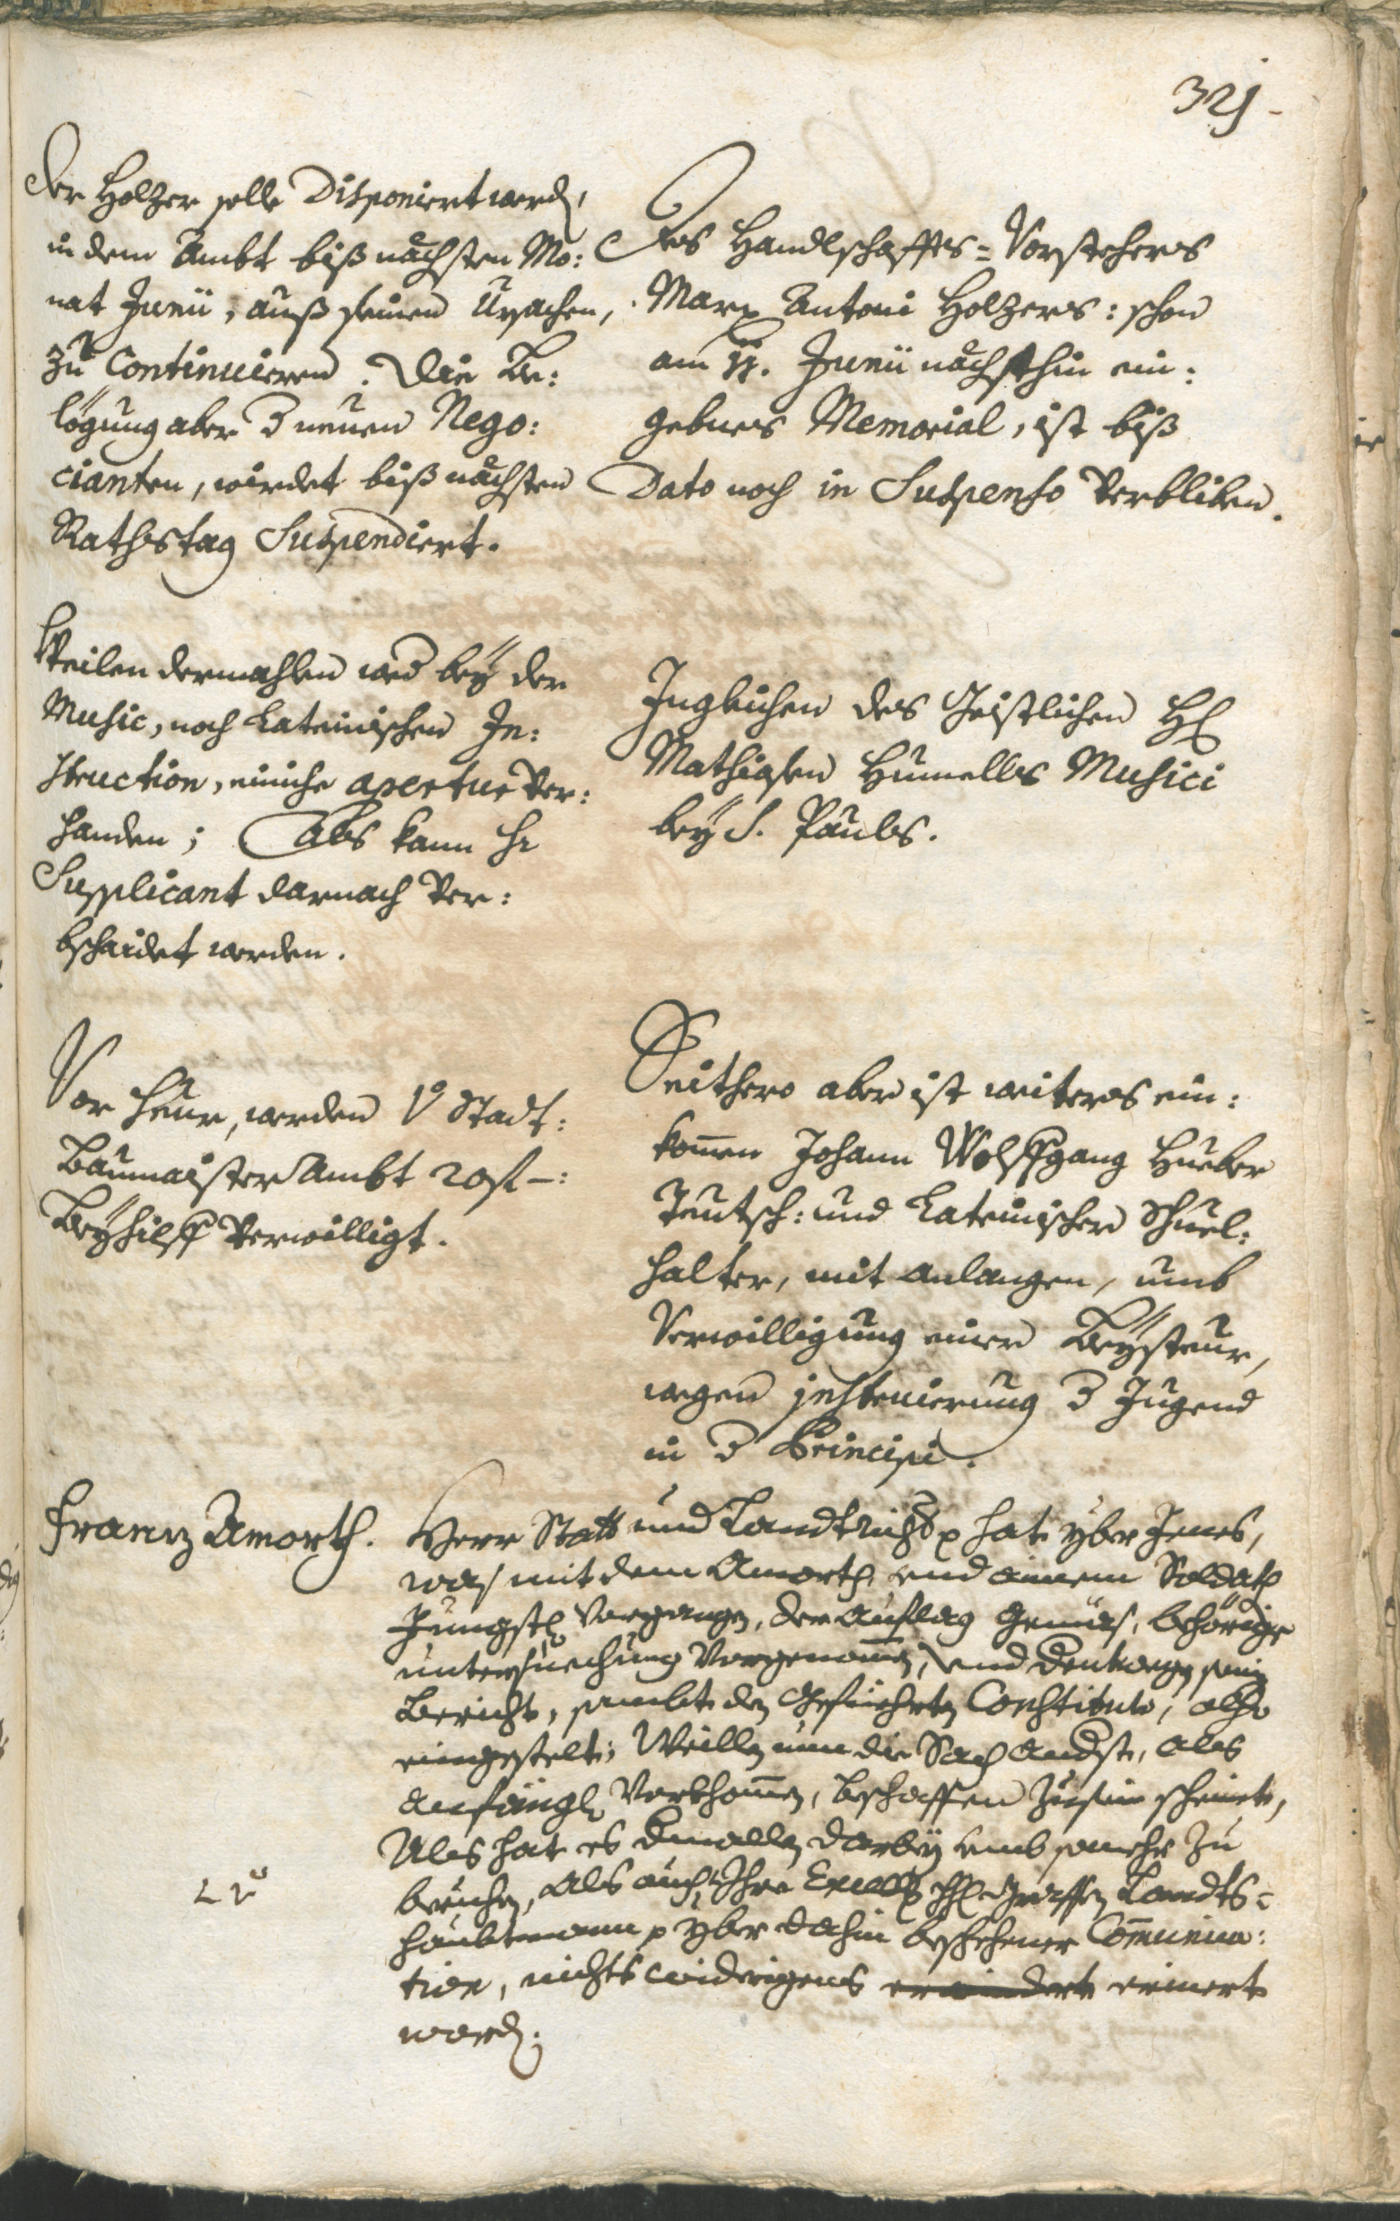 321.
Der Holzer solle Disponiert werd,
in dem Ambt biß nächsten Mo:
nat Junii, auß seinen Ursachen,
zu Continuieren. Die Be:
lögung aber neuen Nego:
cianten, wirdet biß nächsten
Rathstag Suspendiert.
Des Handlschaffts=Vorstehers
Marx Antoni Holzers: schon
am Junii nächsthin ein:
gebnes Memorial, ist biß
Dato noch in Suspenso verbliben.
Weilen dermahlen wed bey der
Music, noch Lateinischen In:
struction, einiche apertur ver:
handen; Als kann Hr
Supplicant darnach ver:
bschaidet werden.
Ingleichen des Geistlichen H
Mathiasen Humelles Musici
bey S. Paules.
Vor heur, werden Stadt:
Baumaister Ambt 20 f –:
Beyhilff verwilligt.
Seithero aber ist weiters ein:
komen Johann Wolffgang Hueber
Teutsch: und Lateinischer Schuel:
halter, mit anlangen, umb
Verwilligung einer Beysteur,
wegen jnstruierung Jugend
in Principi.
Franz Amorth.
Herr Statt und Landtrichter hat yber Jenes,
was mit dem Amorth und ainem Soldath
Jungsth vorgangen, der Auflag gemäs, behörige
untersuechung vorgenomen, und sein
Bericht, sambt den gefüehrten Constituto, also
eingestelt; Weillen nun die Sach andst, als
anfängl vorkhomen, beschaffen zusein scheint,
Als hat es dmallen darbey umb somehr zu
beruhen, als auch Ihro Excell H Graffen Landts=
haubtmann yber dahin beschehene Comunica:
tion, nichts widrigens erwindert erinert
word.